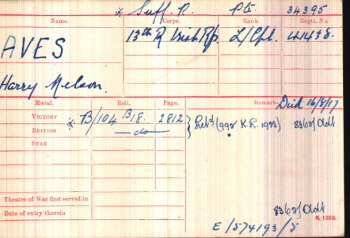 Name. Corps. Rank Regtl. No
* Suff. R. Pte 34395
AVES
13th R Irish Rif L/Cpl. 41438.
Harry Nelson.
Medal. Roll. Page. Remarks Died 16/8/17
VICTORY * B/104 B18. 2812
BRITISH — do —
(992 K.R. 1923) 8363/Adt
STAR
Theatre of War first served in
Date of entry therein
K. 1380.
E/574193/5